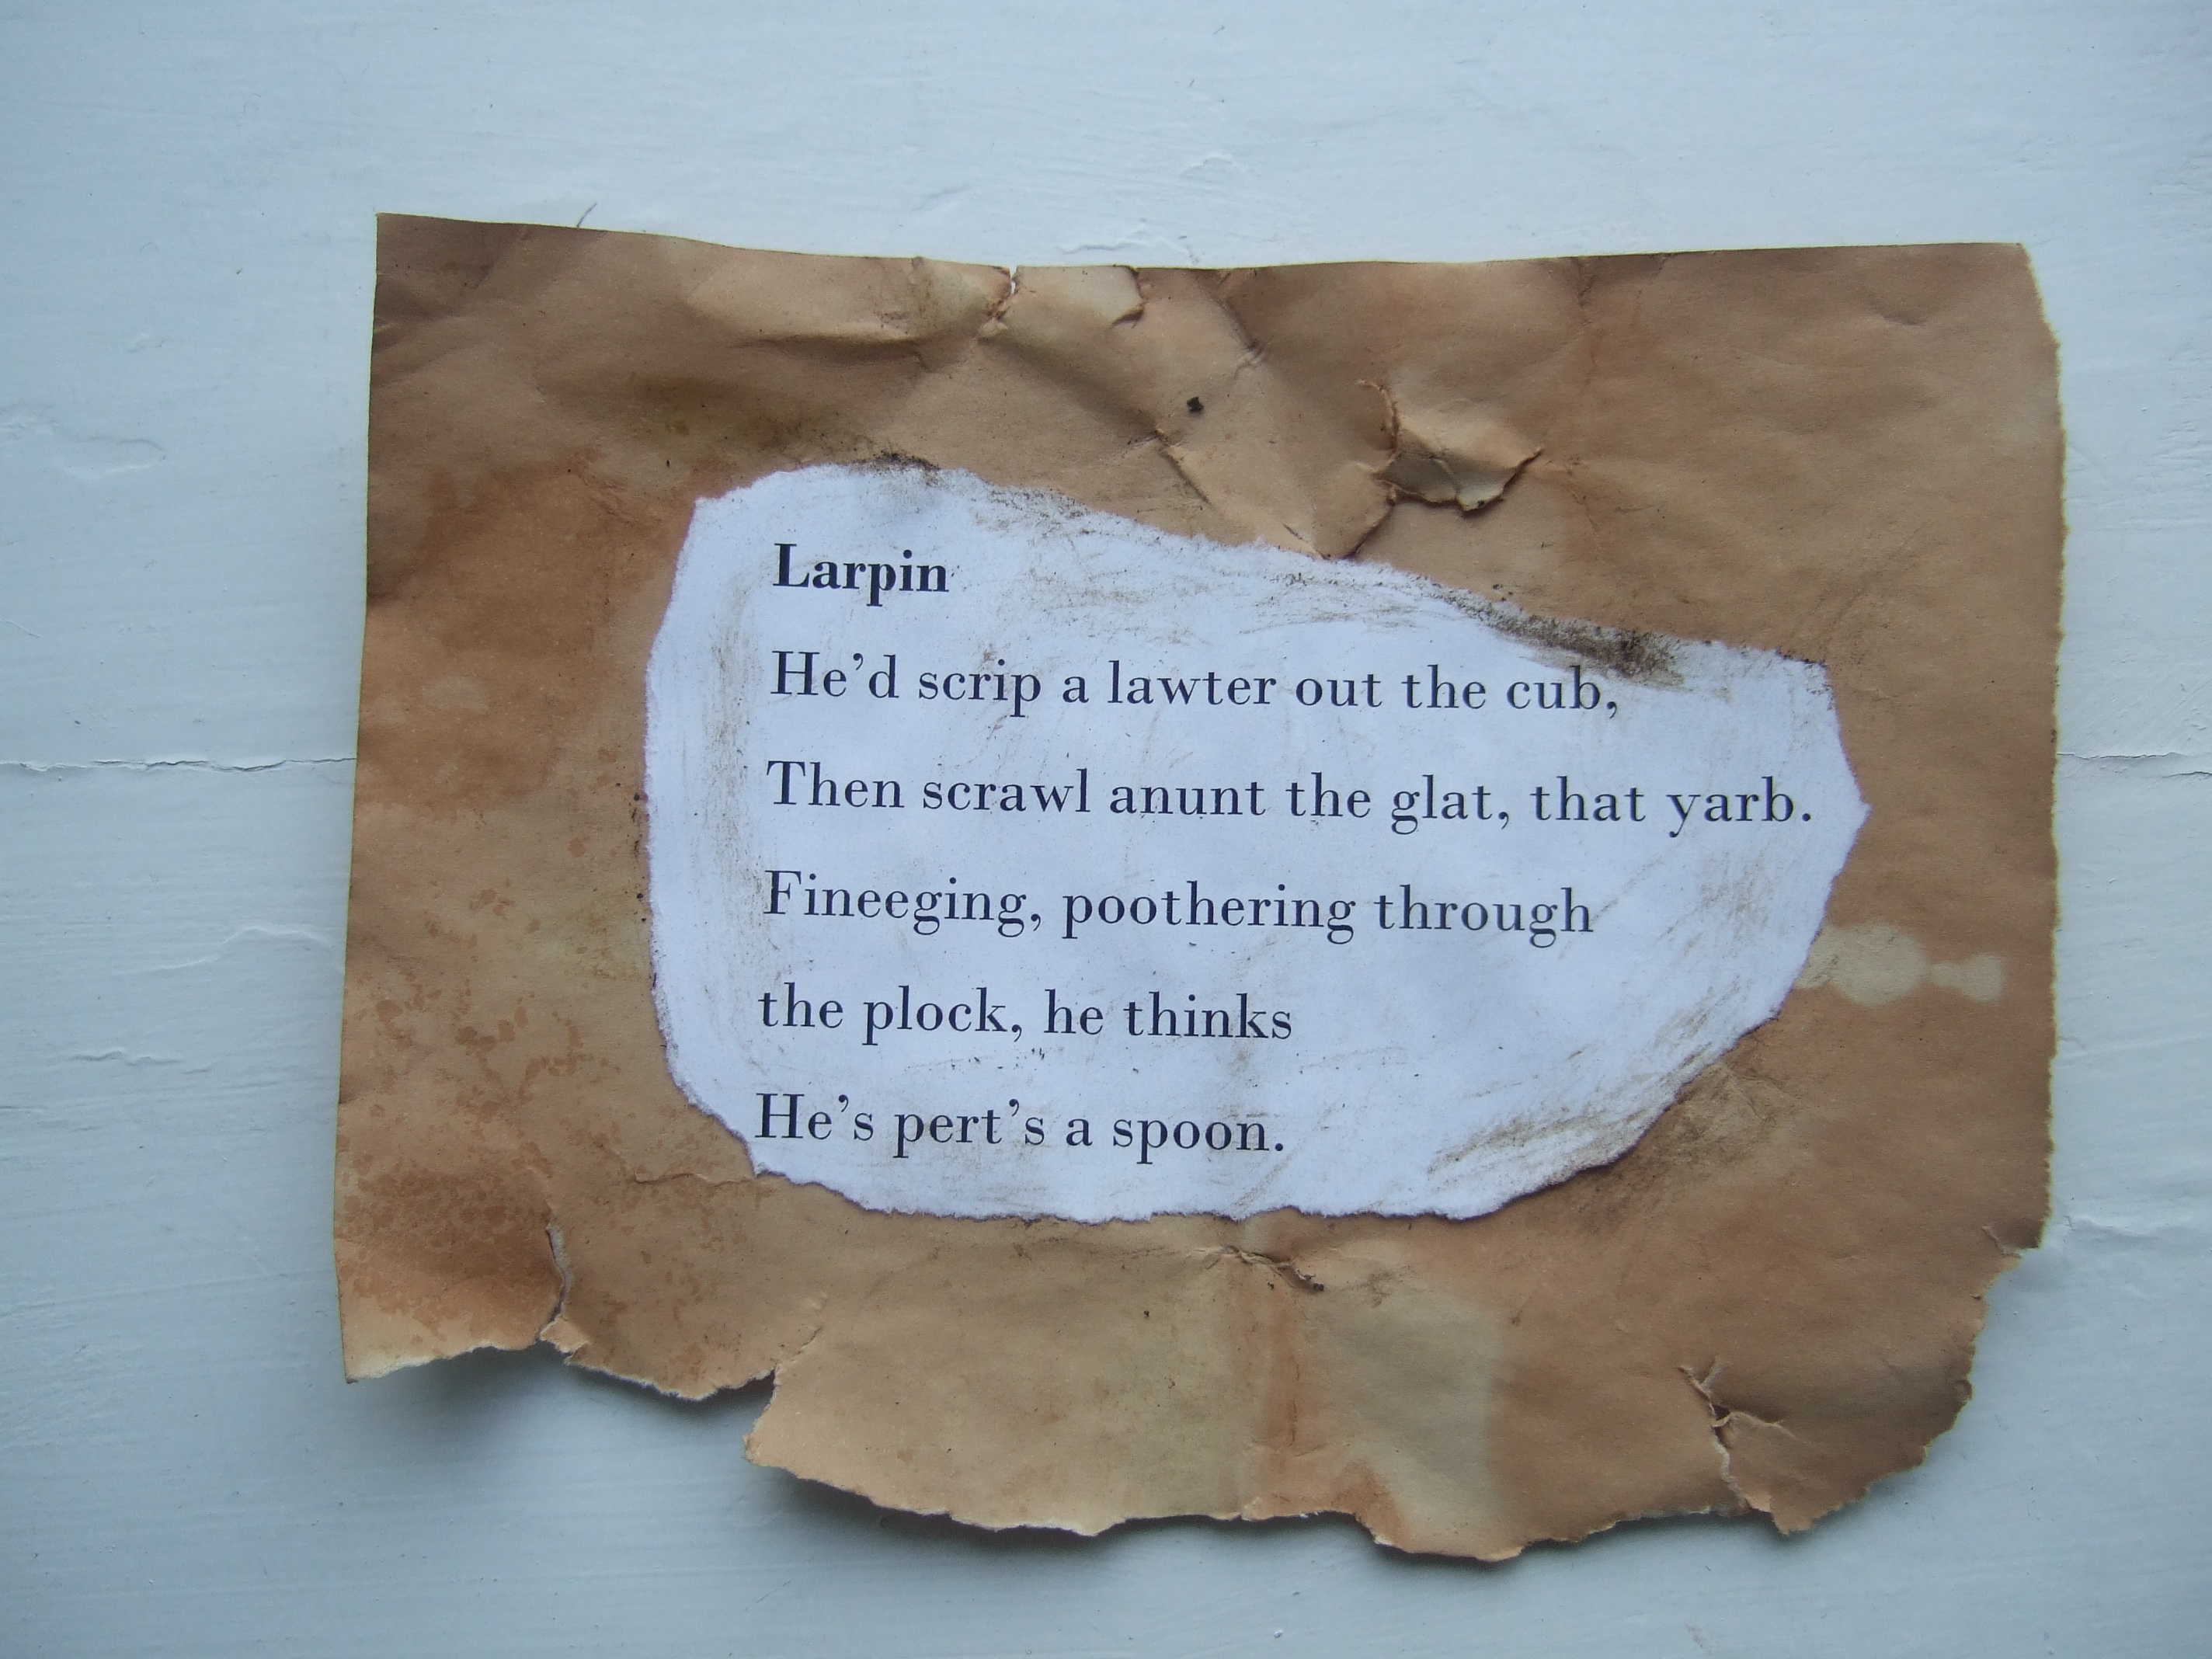 Larpin
He'd scrip a lawter out the cub,
Then scrawl anunt the glat, that yarb.
Fineeging, poothering through
the plock, he thinks
He's pert's a spoon.